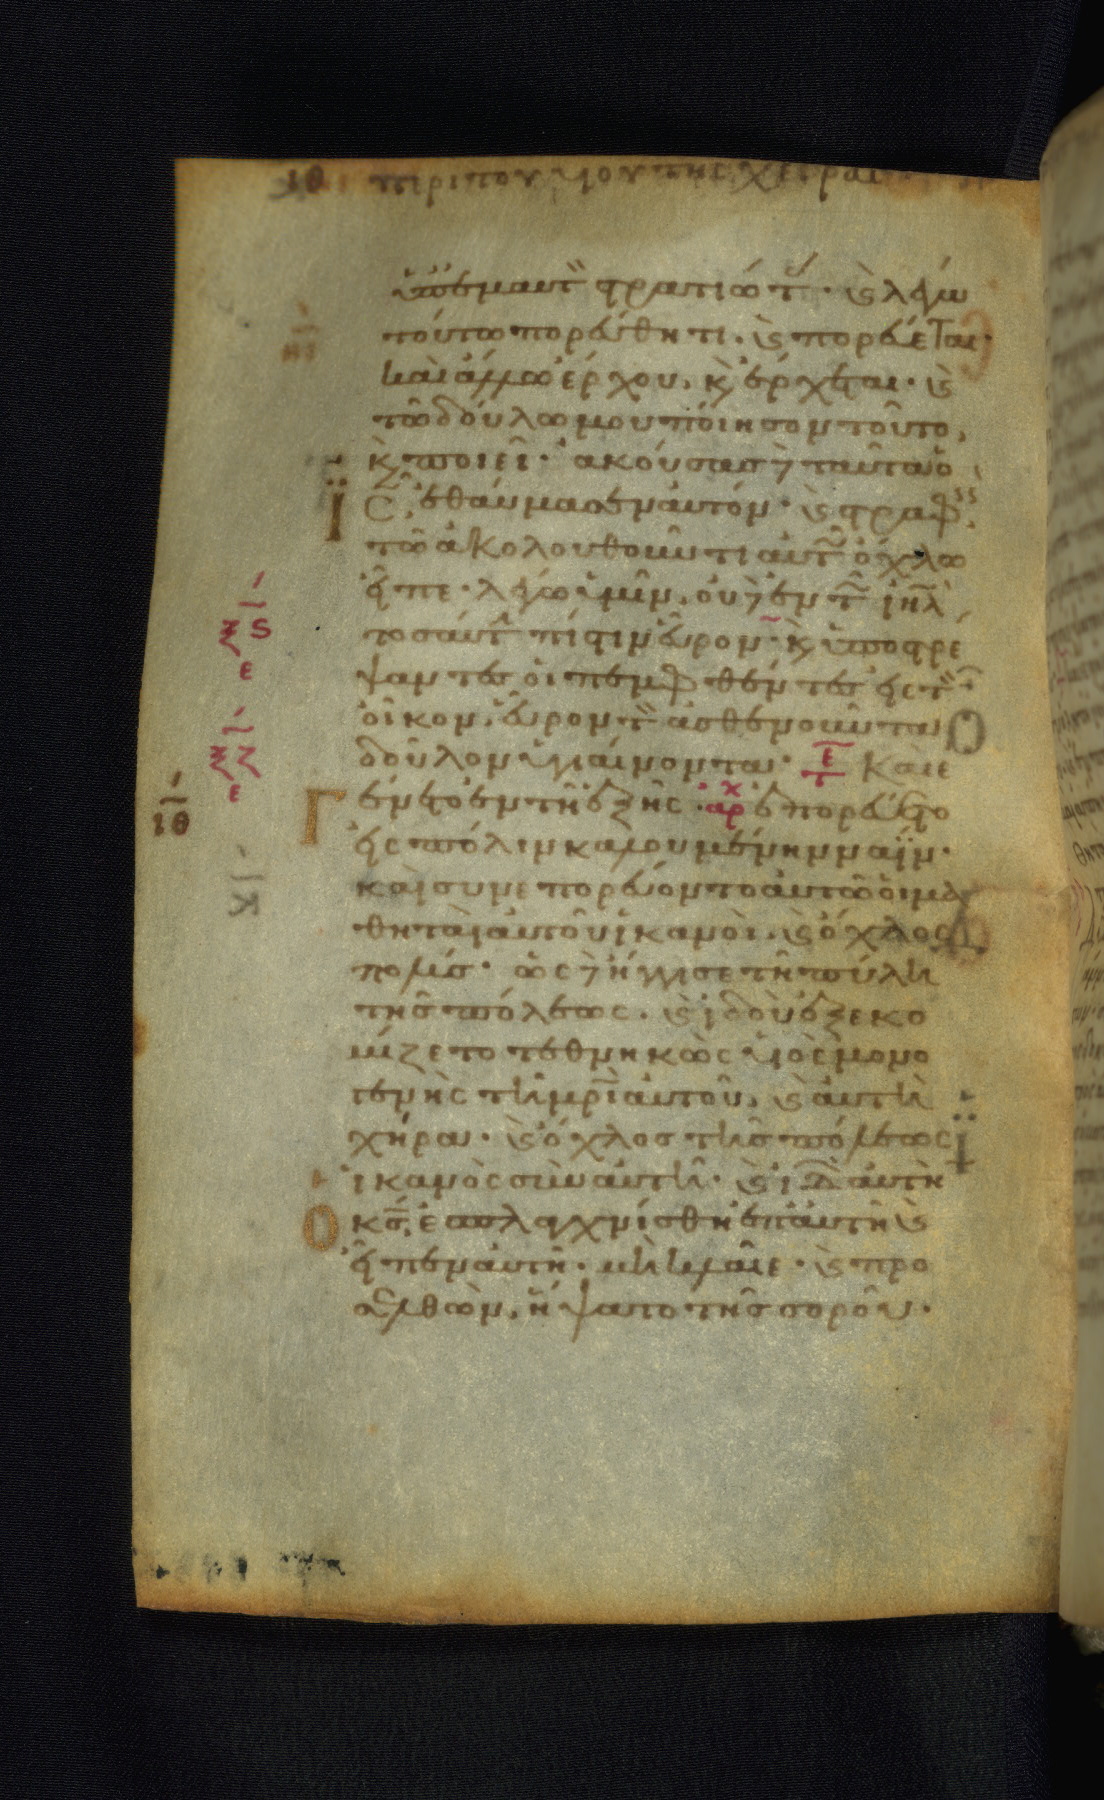 ιθ περι του υιου της χειρας
ὑπ ἐμαυτ στρατιώτ · κ λέγω
τούτω πορεύθητι. κ πορεύεται·
καὶ ἄλλω ἔρχου. κ ἔρχεται· κ
τῶ δούλω μου ποίησον τοῦτο,
κ ποιεῖ· ἀκούσας δὲ ταῦτα ὁ
ι̅ς̅, ἐθαύμασεν αὐτόν· κ στραφεὶς
τῶ ἀκολουθοῦντι αὐτ ὄχλω
εἶπε· λέγω ὑμῖν, οὐδὲ ἐν τ ιηλ
τοσαύτ πίστιν εὗρον· κ ὑποστρέ
ψαντες οἱ πεμφθέντες εἰς τ
οἶκον, εὗρον τ ἀσθενοῦντα
δοῦλον ὑγιαίνοντα· τε Και ε
γένετο ἐν τῆ ἑξῆς · αρχ ἐπορεύετο
εἰς πόλιν καλουμένην ναΐν·
καὶ συνεπορεύοντο αὐτῶ οἱ μα
θηταὶ αὐτοῦ ἱκανοὶ. κ ὄχλος
πολύς· ὡς δὲ ἤγγισε τῆ πύλη
τῆς πόλεως. κ ἰδοὺ ἐξεκο
μίζετο τεθνηκὼς υἱὸς μονο
γενὴς τῆ μρὶ αὐτοῦ, κ αὐτὴ
χήρα· κ ὄχλος τῆς πόλεως
ἱκανὸς σὺν αὐτῆ· κ ἰδ αὐτὴν
ὁ κς, ἐσπλαγχνίσθη ἐπ αὐτῆ κ
εἶπεν αὐτῆ· μὴ κλαῖε· κ προ
σελθὼν, ἥψατο τῆς σοροῦ·
ιη
ξς
ε
ξζ
ε
ιθ